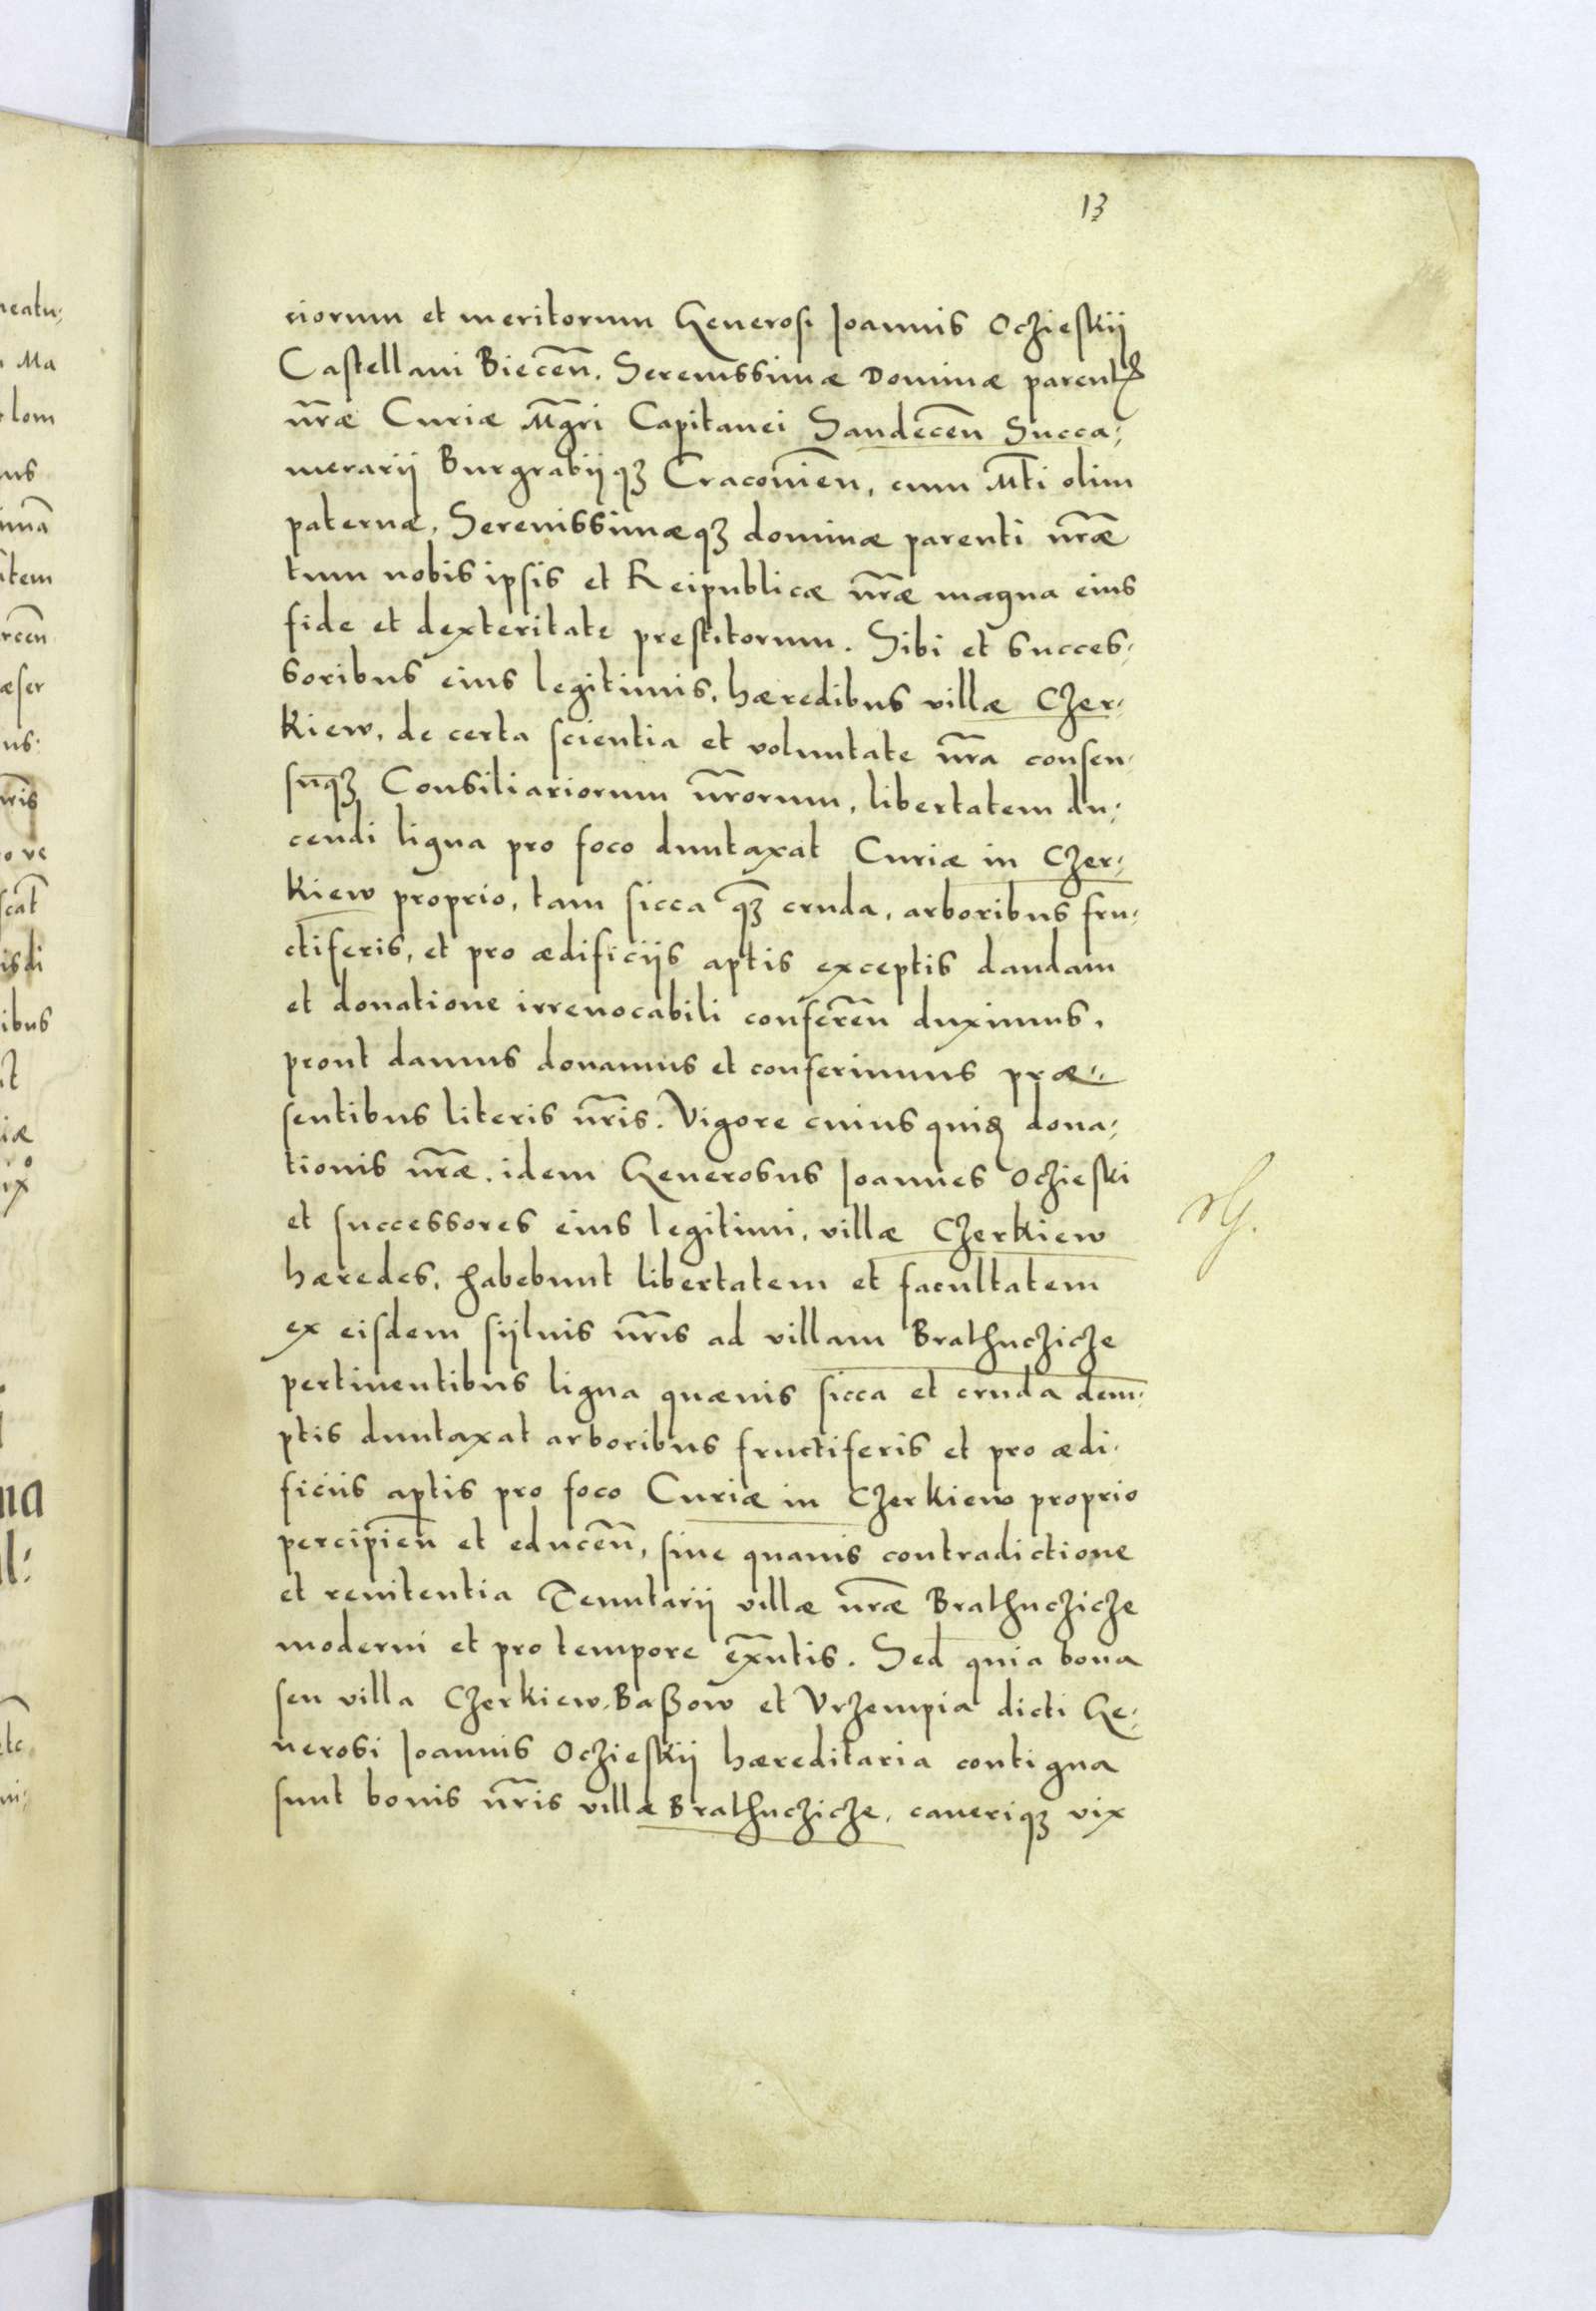 13
ciorum et meritorum Generosi Joannis Oczieskij
Castellani Biecen̄. Serenissimæ Dominæ parentꝭ
nr̄æ Curiæ Mgr̄i Capitanei Sandecen̄ Succa:
merarij Burgrabijqꝫ Cracovien̄, cum Mti olim
paternæ, Serenissimæqꝫ dominæ parenti nr̄æ
tum nobis ipsis et Reipublicæ nr̄æ magna eius
fide et dexteritate prestitorum. Sibi et succes:
soribus eius legitimis, hæredibus villæ Czer:
kiew, de certa scientia et voluntate nr̄a consen:
suqꝫ Consiliariorum nr̄orum, libertatem du:
cendi ligna pro foco duntaxat Curiæ in Czer:
kiew proprio, tam sicca qꝫ cruda, arboribus fru:
ctiferis, et pro ædificijs aptis exceptis dandam
et donatione irrevocabili conferen̄ duximus,
prout damus donamus et conferimus præ:
sentibus literis nr̄is. Vigore cuius quiꝰ dona:
tionis nr̄æ. idem Generosus Joannes Oczieski
et successores eius legitimi, villæ Czerkiew
hæredes, habebunt libertatem et facultatem
ex eisdem sijluis nr̄is ad villam Brathuczicze
pertinentibus ligna quævis sicca et cruda dem:
ptis duntaxat arboribus fructiferis et pro ædi:
ficiis aptis pro foco Curiæ in Czerkiew proprio
percipien̄ et educen̄, sine quavis contradictione
et renitentia Tenutarij villæ nr̄æ Brathuczicze
moderni et pro tempore ex̄ntis. Sed quia bona
seu villa Czerkiew, Baßow et Vrzempia dicti Ge:
nerosi Joannis Oczieskij hæreditaria contigua
sunt bonis nr̄is villæ Brathuczicze, caveriqꝫ vix